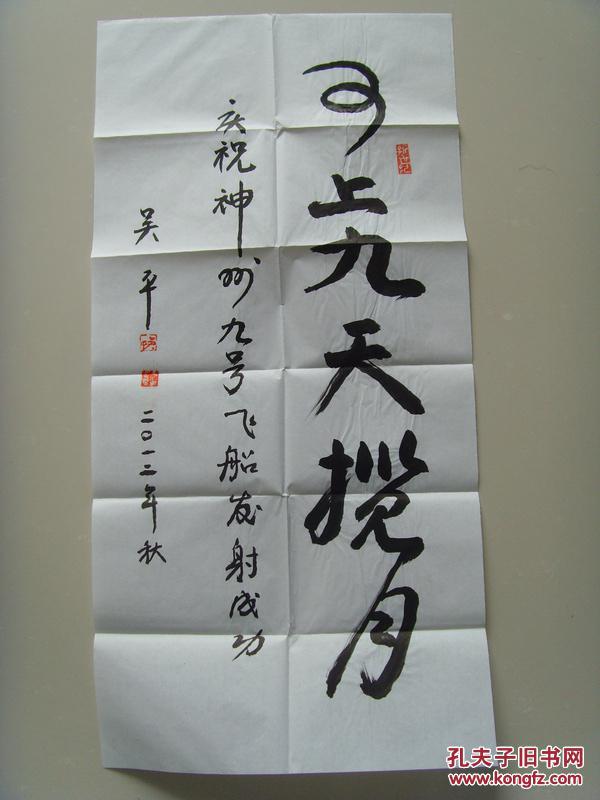 可上九天揽月
庆祝神州九号飞船发射成功
吴平
二〇一二年秋
孔夫子旧书网
www.kongfz.com